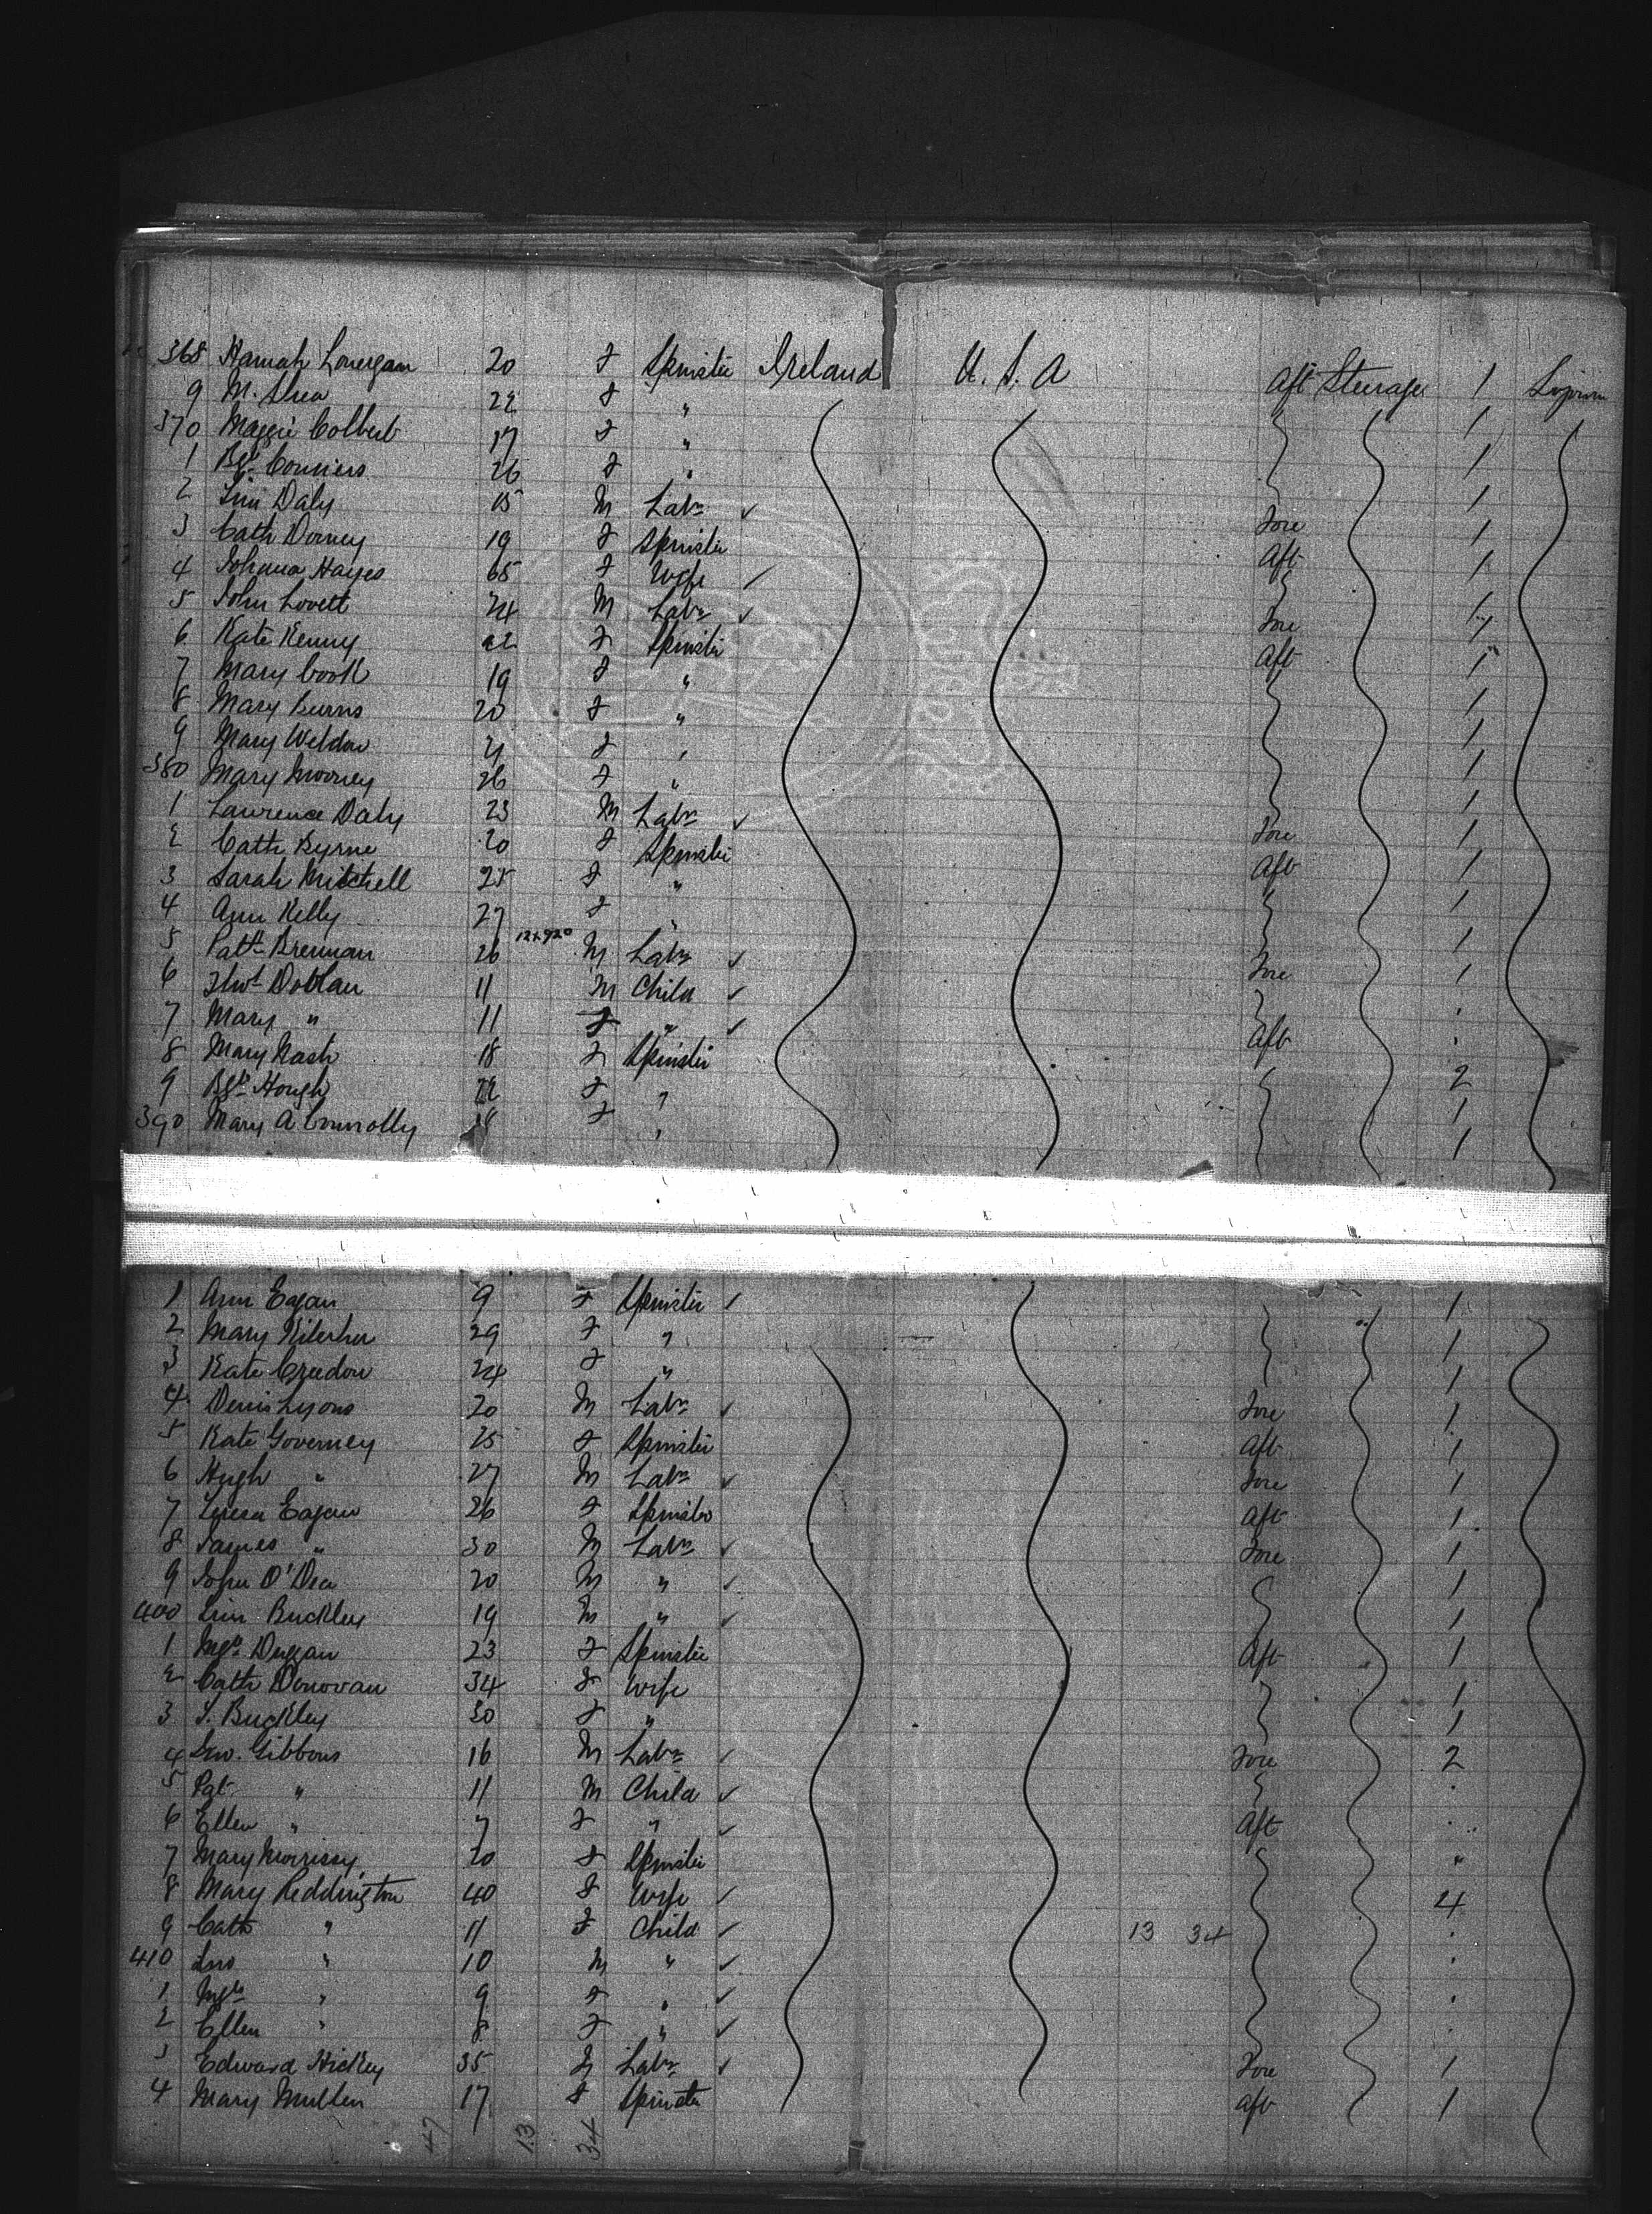 368 Hannah Lonergan 20 F Spinster Ireland U. S. A Aft Steerage 1
9 M. Shea 22 F " 1
370 Maggie Colbert 17 F " 1
1 Bgt Conners 26 F " 1
2 Tim Daly 15 M Labr ✓ Fore 1
3 Cath Dorney 19 F Spinster Aft 1
4 Johana Hayes 65 F Wife ✓ 1
5 John Lovett 24 M Labr ✓ Fore 1
6 Kate Kenny 22 F Spinster Aft 1
7 Mary Cook 19 F " 1
8 Mary Burns 20 F " 1
9 Mary Weldon 21 F " 1
380 Mary Mooney 26 F " 1
1 Lawrence Daly 23 M Labr ✓ Fore 1
2 Cath Byrne 20 F Spinster Aft 1
3 Sarah Mitchell 25 F " 1
4 Ann Kelly 27 F " 1
5 Patk Brennan 26 M Labr ✓ Fore 1
6 Thos Dollan 11 M Child ✓
7 Mary " 11 F " ✓ Aft
8 Mary Nash 18 F Spinster 2
9 Bgt Hough 22 F " 1
390 Mary A Connolly 18 F " 1
1 Ann Eagan 9 F Spinster ✓ 1
2 Mary Kilerher 29 F " 1
3 Kate Creedon 24 F " 1
4 Denis Lyons 20 M Labr ✓ Fore 1
5 Kate Governey 25 F Spinster Aft 1
6 Hugh " 27 M Labr ✓ Fore 1
7 Teresa Eagan 26 F Spinster Aft 1
8 James " 30 M Labr ✓ Fore 1
9 John O'Dea 20 M " ✓ 1
400 Tim Buckley 19 M " ✓ 1
1 Mgt Duggan 23 F Spinster Aft 1
2 Cath Donovan 34 F Wife 1
3 J. Buckley 30 F " 1
4 Jno. Gibbons 16 M Labr ✓ Fore 2
5 Pat " 11 M Child ✓
6 Ellen " 7 F " ✓ Aft
7 Mary Morrissy 20 F Spinster "
8 Mary Reddington 40 F Wife ✓ 4
9 Cath " 11 F Child ✓ 13 34
410 Jno " 10 M " ✓
1 Mgt " 9 F " ✓
2 Ellen " 8 F " ✓
3 Edward Hickey 35 M Labr ✓ Fore 1
4 Mary Mullen 17 F Spinster Aft 1
47 13 34